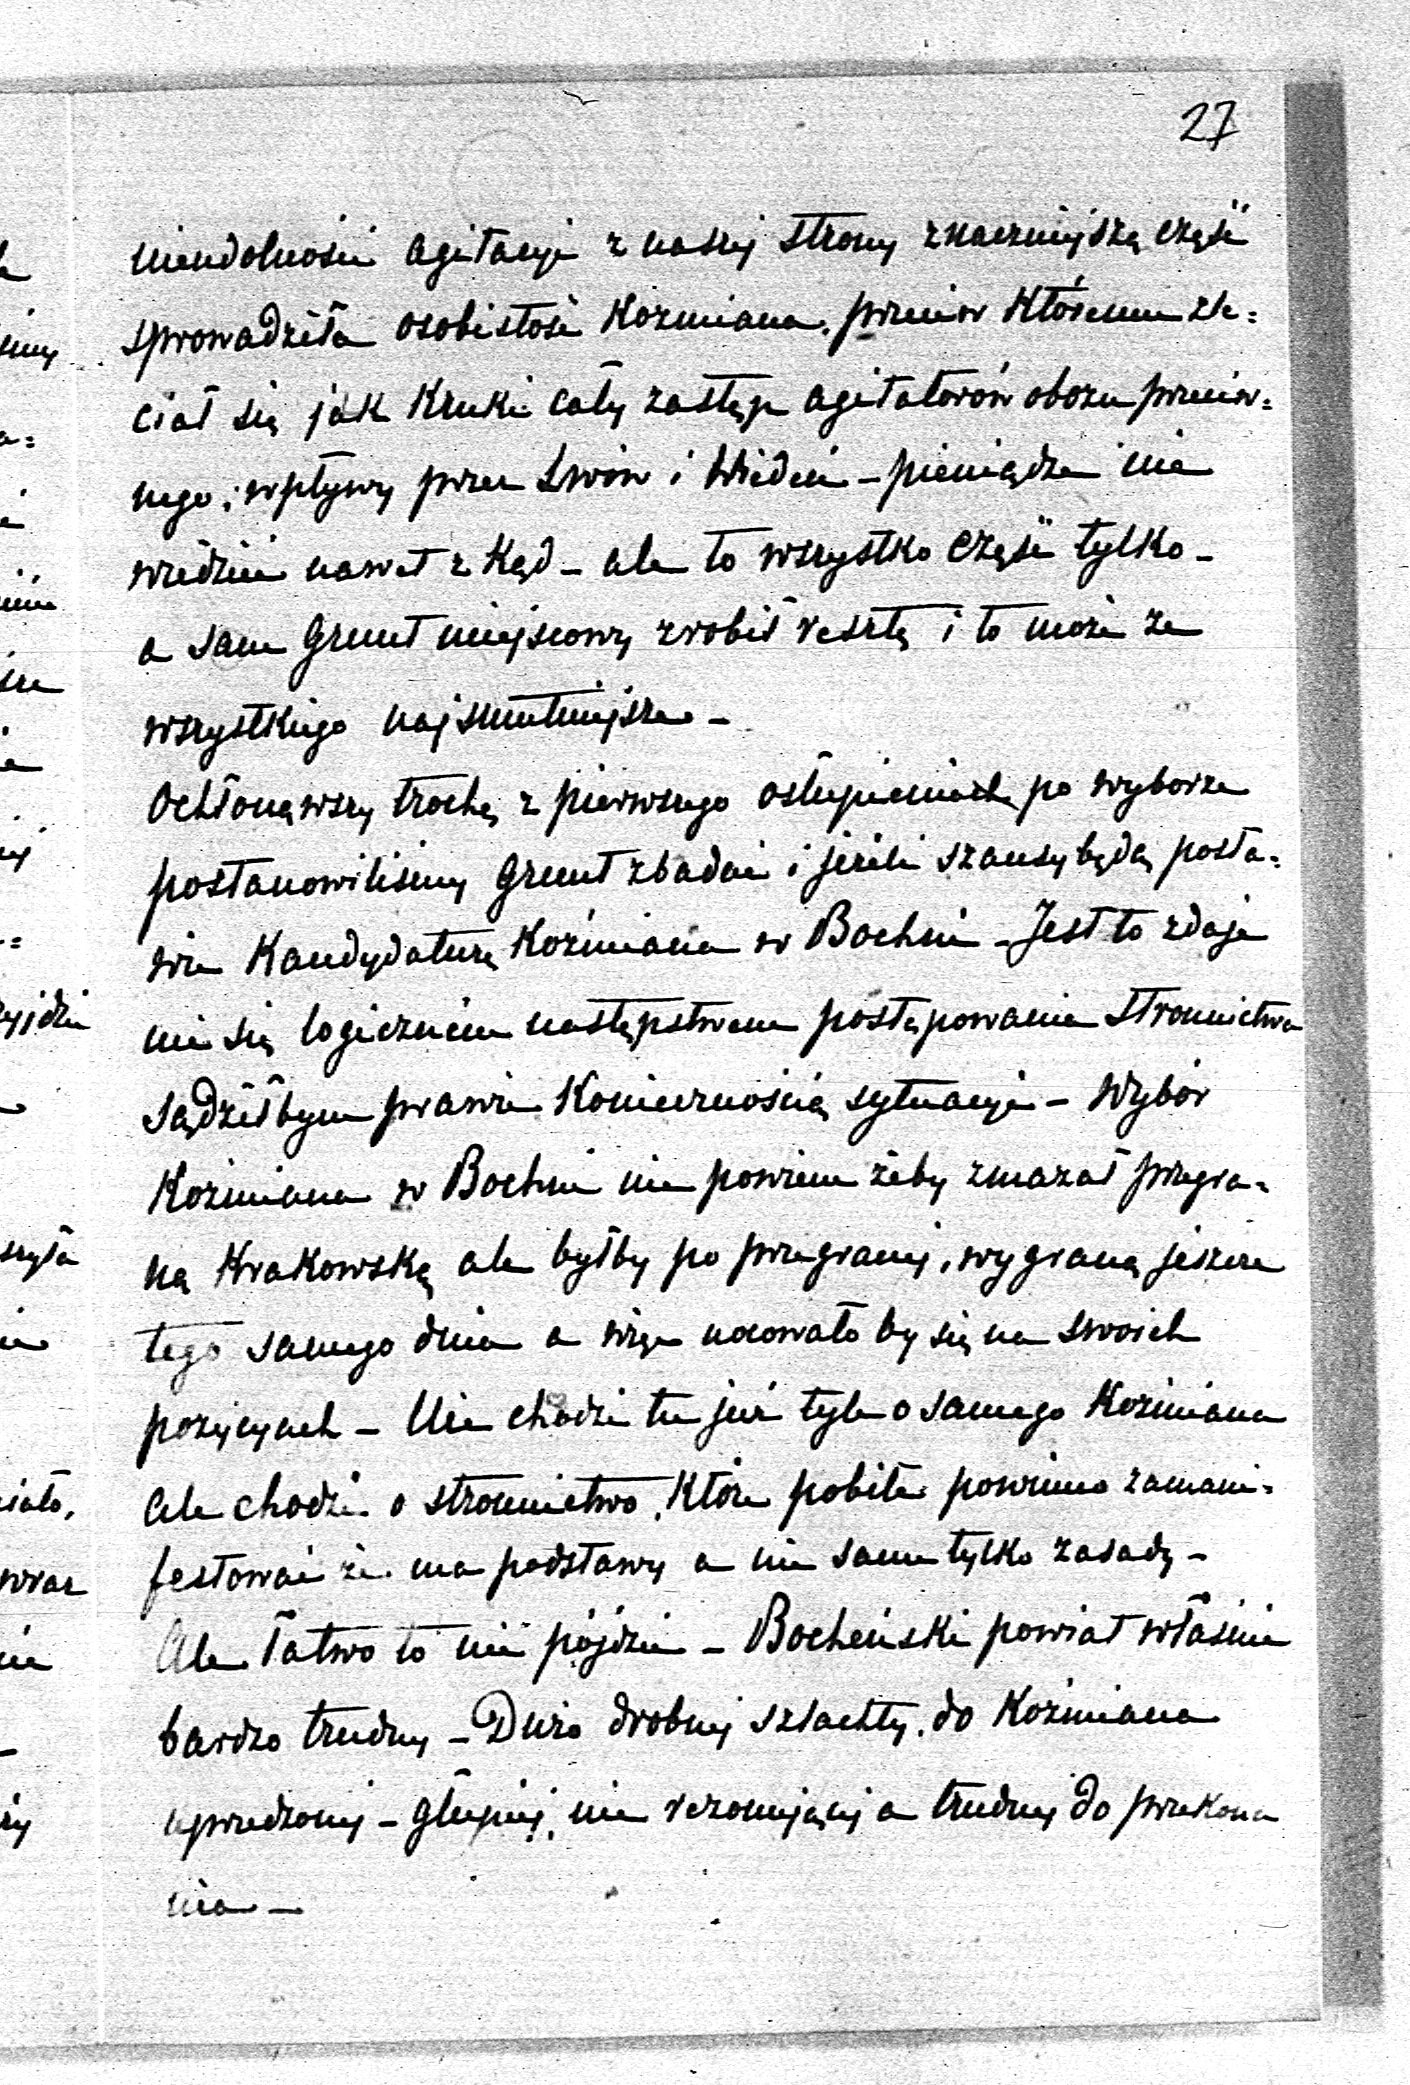 27
nieudolności agitacyi z naszej strony znaczniejszą część
sprowadziła osobistość Koźmiana, przeciw któremu zle=
ciał się jak kruki cały zastęp agitatorów obozu przeciw=
nego; wpływy przez Lwów i Wiedeń – pieniądze nie
wiedzieć nawet z kąd – ale to wszystko część tylko –
a sam grunt miejscowy zrobił resztę i to może ze
wszystkiego najsmutniejsze –
Ochłonąwszy trochę z pierwszego osłupienia po wyborze
postanowiliśmy grunt zbadać i jeżeli szansy będą posta=
wić kandydaturę Koźmiana w Bochni – Jest to zdaje
mi się logicznem następstwem postępowania Stronnictwa
sądziłbym prawie koniecznością sytuacyi – Wybór
Koźmiana w Bochni nie powiem żeby zmazał przegra=
ną Krakowską ale byłby po przegranej, wygraną jeszcze
tego samego dnia a więc nocowało by się na swoich
pozycyach – Nie chodzi tu już tyle o samego Koźmiana
ale chodzi o stronnictwo, które pobite powinno zamani=
festować że ma podstawy a nie same tylko zasady –
Ale łatwo to nie pójdzie – Bocheński powiat właśnie
bardzo trudny – Dużo drobnej szlachty, do Koźmiana
uprzedzonej – głupiej, nie rezonującej a trudnej do przekona
nia –